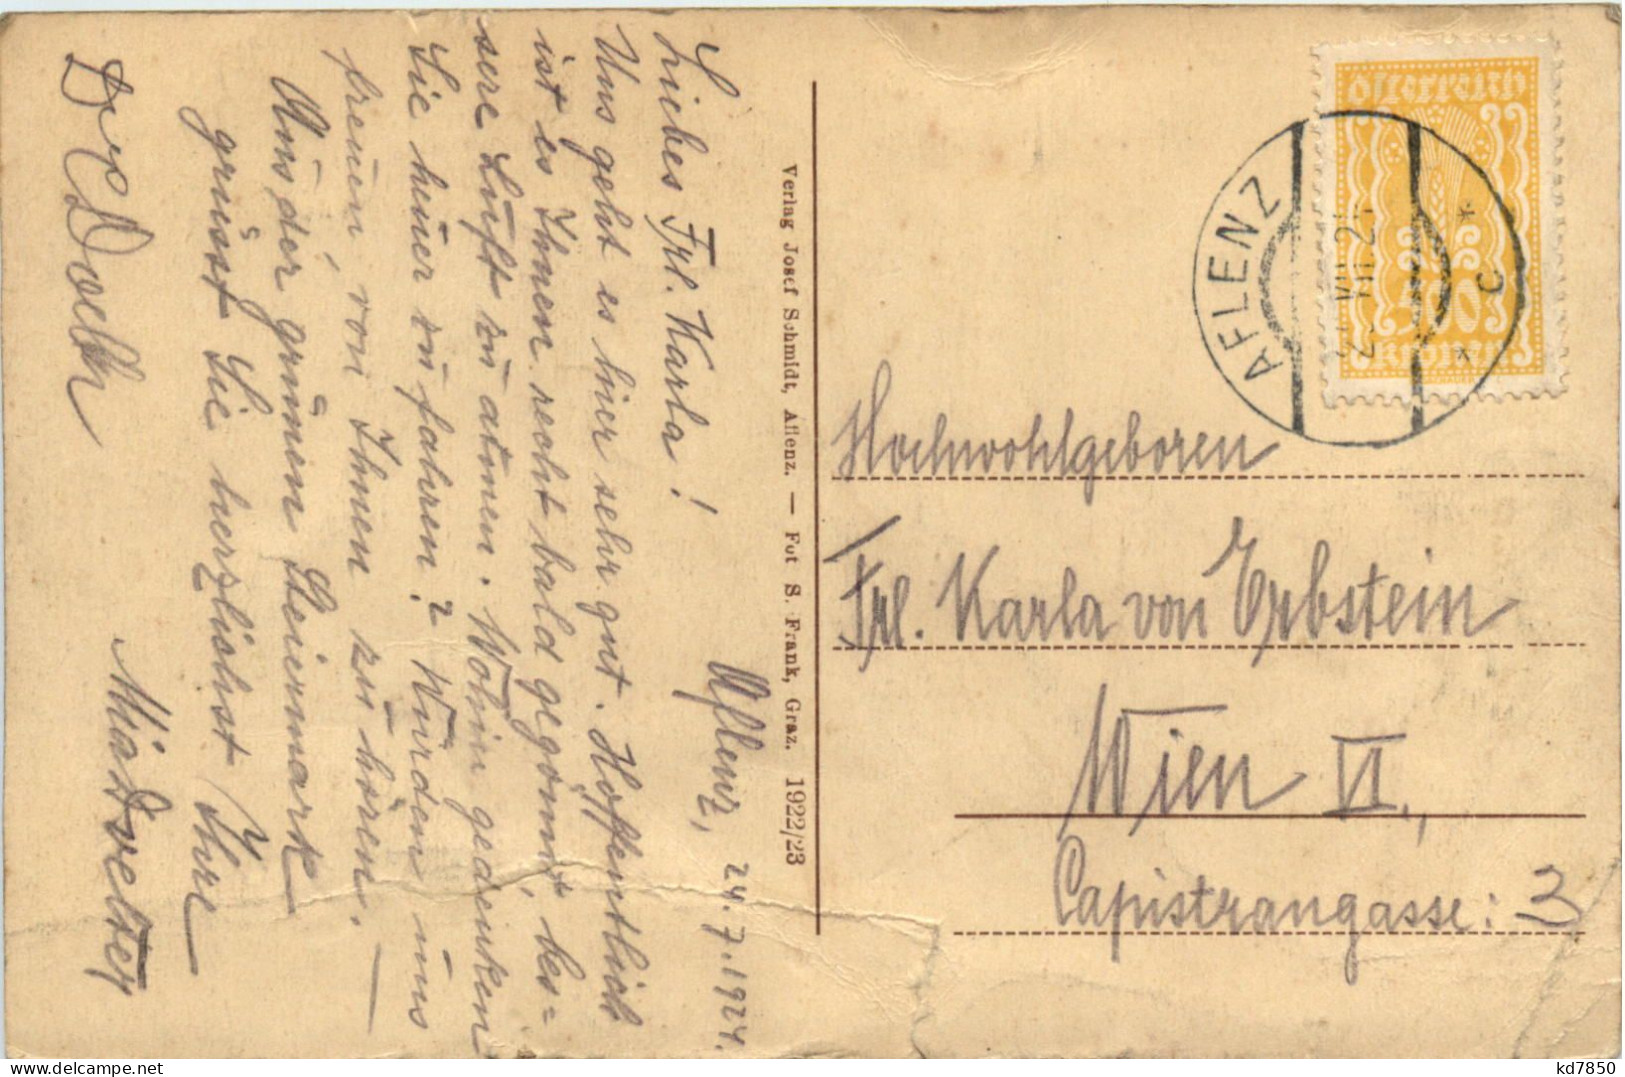 Aflenz, 24.7.1924.
Liebes Frl. Karla!
Uns geht es hier sehr gut. Hoffentlich
ist es Ihnen recht bald gegönnt, bes=
sere Luft zu atmen. Wohin gedenken
Sie heuer zu fahren? Würden uns
freuen, von Ihnen zu hören. —
Aus der grünen Steiermark
grüsst Sie herzlichst Ihre
Verlag Josef Schmidt, Aflenz. — Fot S. Frank, Graz. 1922/23
Österreich
500
Kronen
AFLENZ
* C *
Hochwohlgeboren
Frl. Karla von Erbstein
Wien VI.,
Capistrangasse: 3
kd7850